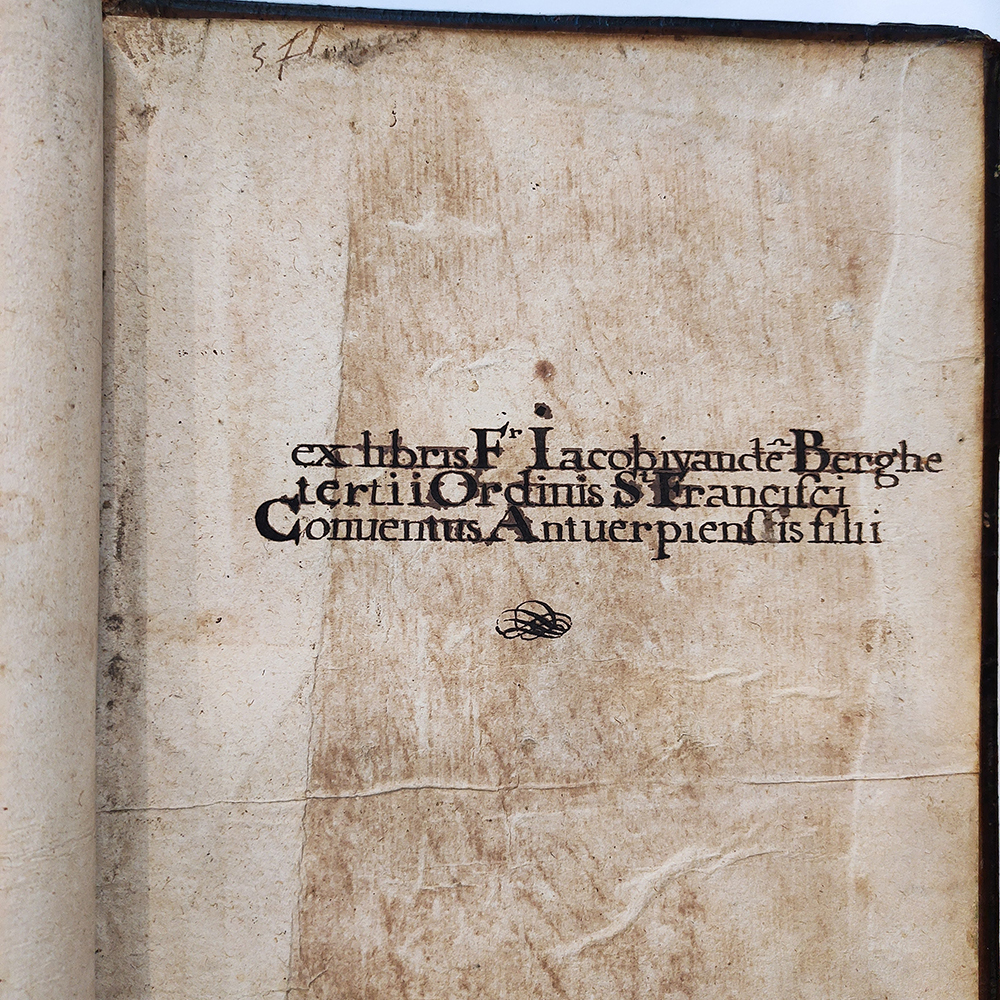 s fl
ex libris Fr Iacobi vandē Berghe
tertii Ordinis St Francisci
Conuentus Antuerpienſsis filii